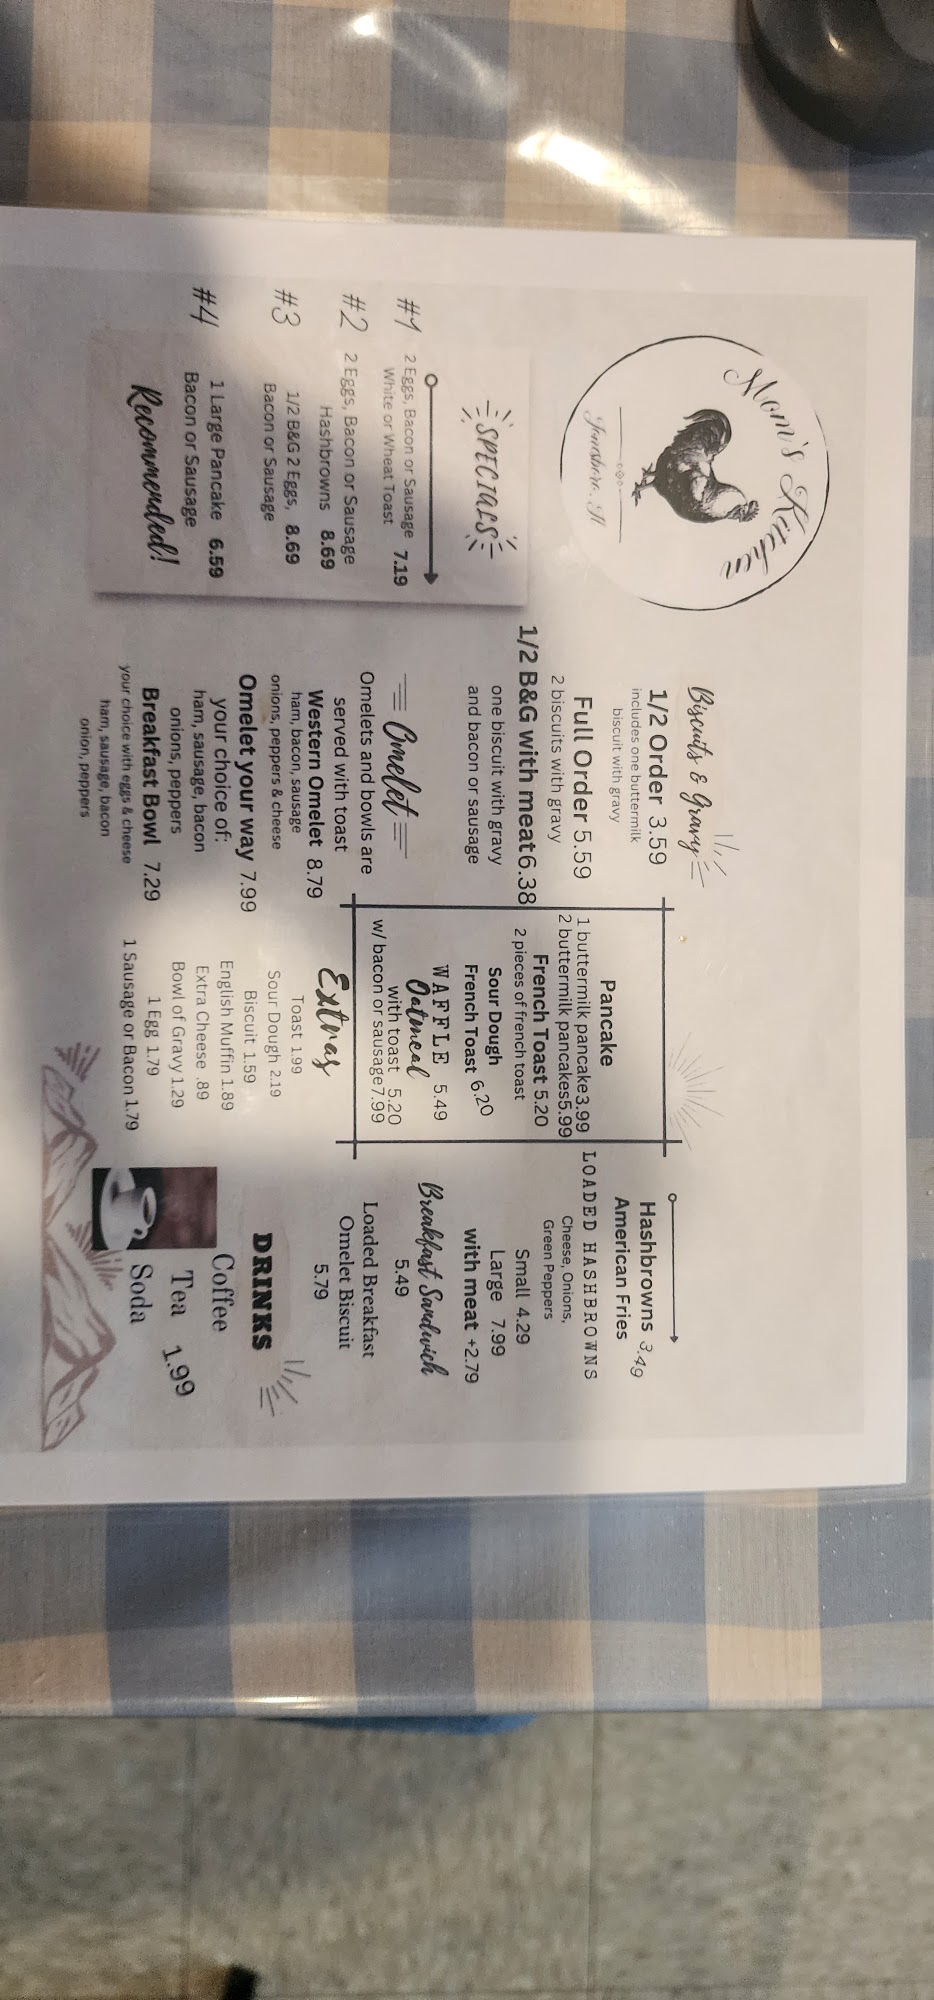 Mom's Kitchen
Jonesboro, Il
SPECIALS
#1 2 Eggs, Bacon or Sausage
White or Wheat Toast 7.19
#2 2 Eggs, Bacon or Sausage
Hashbrowns 8.69
#3 1/2 B&G 2 Eggs, 8.69
Bacon or Sausage
#4 1 Large Pancake 6.59
Bacon or Sausage
Recommended!
Biscuits & Gravy
1/2 Order 3.59
includes one buttermilk
biscuit with gravy
Full Order 5.59
2 biscuits with gravy
1/2 B&G with meat6.38
one biscuit with gravy
and bacon or sausage
Omelet
Omelets and bowls are
served with toast
Western Omelet 8.79
ham, bacon, sausage
onions, peppers & cheese
Omelet your way 7.99
your choice of:
ham, sausage, bacon
onions, peppers
Breakfast Bowl 7.29
your choice with eggs & cheese
ham, sausage, bacon
onion, peppers
Pancake
1 buttermilk pancake3.99
2 buttermilk pancakes5.99
French Toast 5.20
2 pieces of french toast
Sour Dough
French Toast 6.20
WAFFLE 5.49
Oatmeal
with toast 5.20
w/ bacon or sausage7.99
Extras
Toast 1.99
Sour Dough 2.19
Biscuit 1.59
English Muffin 1.89
Extra Cheese .89
Bowl of Gravy 1.29
1 Egg 1.79
1 Sausage or Bacon 1.79
Hashbrowns 3.49
American Fries
LOADED HASHBROWNS
Cheese, Onions,
Green Peppers
Small 4.29
Large 7.99
with meat +2.79
Breakfast Sandwich
5.49
Loaded Breakfast
Omelet Biscuit
5.79
DRINKS
Coffee
Tea 1.99
Soda